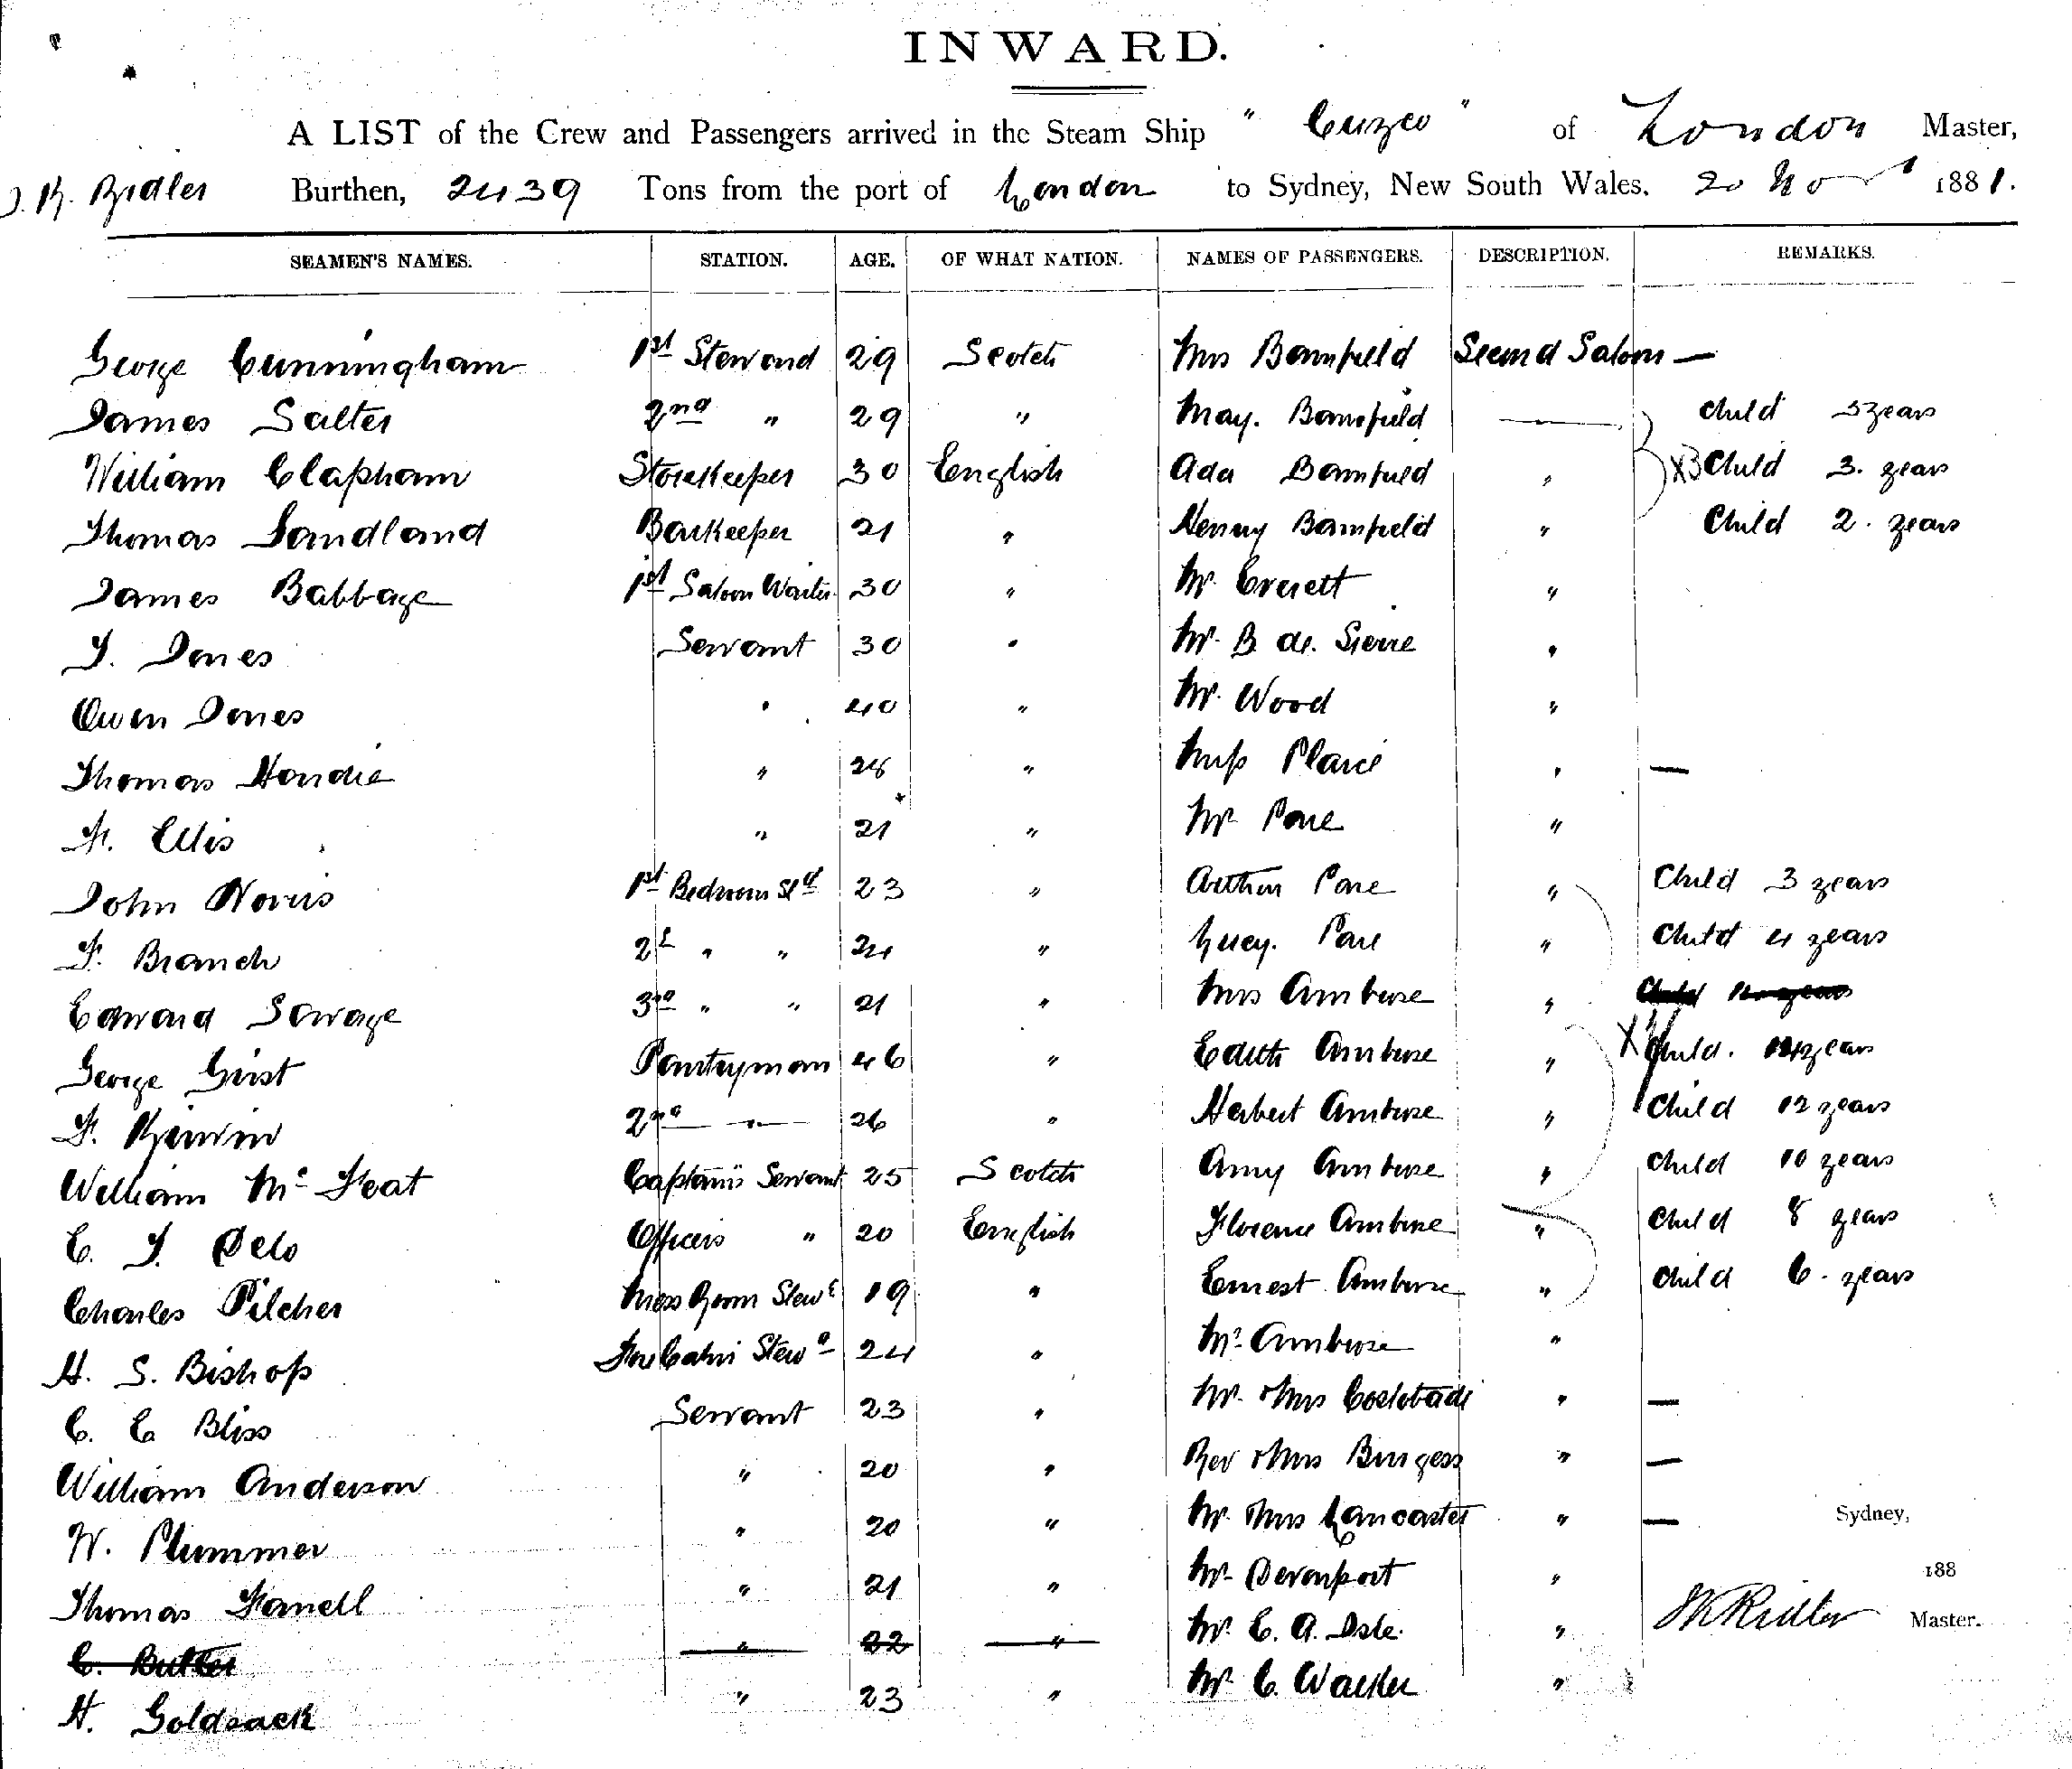 INWARD.
A LIST of the Crew and Passengers arrived in the Steam Ship " Cuzco " of London Master,
J. K. Ridler Burthen, 2439 Tons from the port of London to Sydney, New South Wales, 20 Novr 1881.
SEAMEN'S NAMES. STATION. AGE. OF WHAT NATION. NAMES OF PASSENGERS. DESCRIPTION. REMARKS.
George Cunningham 1st Steward 29 Scotch Mrs Bamfield Second Saloon —
James Salter 2nd " 29 " May. Bamfield — Child 5 years
William Clapham Storekeeper 30 English Ada Bamfield " X3 Child 3. years
Thomas Sandland Barkeeper 21 " Henry Bamfield " Child 2. years
James Babbage 1st Saloon Waiter 30 " Mr. Everett "
J. Jones Servant 30 " Mr. B. de. Sierre "
Owen Jones " 40 " Mr. Wood "
Thomas Hardie " 28 " Miss Plaice " —
H. Ellis " 21 " Mr Pare "
John Norris 1st Bedroom Std 23 " Arthur Pare " Child 3 years
F. Branch 2d " " 24 " Lucy. Pare " Child 4 years
Edward Savage 3rd " " 21 " Mrs Ambrose " Child years
George Girst Pantryman 46 " Edith Ambrose " Child. 14 years
F. Kirwin 2nd — " — 26 " Herbert Ambrose " Child 12 years
William Mc Feat Captain's Servant 25 Scotch Amy Ambrose " Child 10 years
C. J. Delo Officers " 20 English Florence Ambrose " Child 8 years
Charles Pilcher Mess Room Stewd 19 " Ernest Ambrose " Child 6. years
H. S. Bishop Fore Cabin Stewd 24 " Mr. Ambrose "
C. C. Bliss Servant 23 " Mr. & Mrs " —
William Anderson " 20 " Rev & Mrs Burgess " —
W. Plummer " 20 " Mr. & Mrs Lancaster " — Sydney,
Thomas Farnell " 21 " Mr. Devonport " 188
C. Butler " 22 " Mr. C. A. " J K Ridler Master.
H. Goldsack " 23 " Mr. C. Walker "